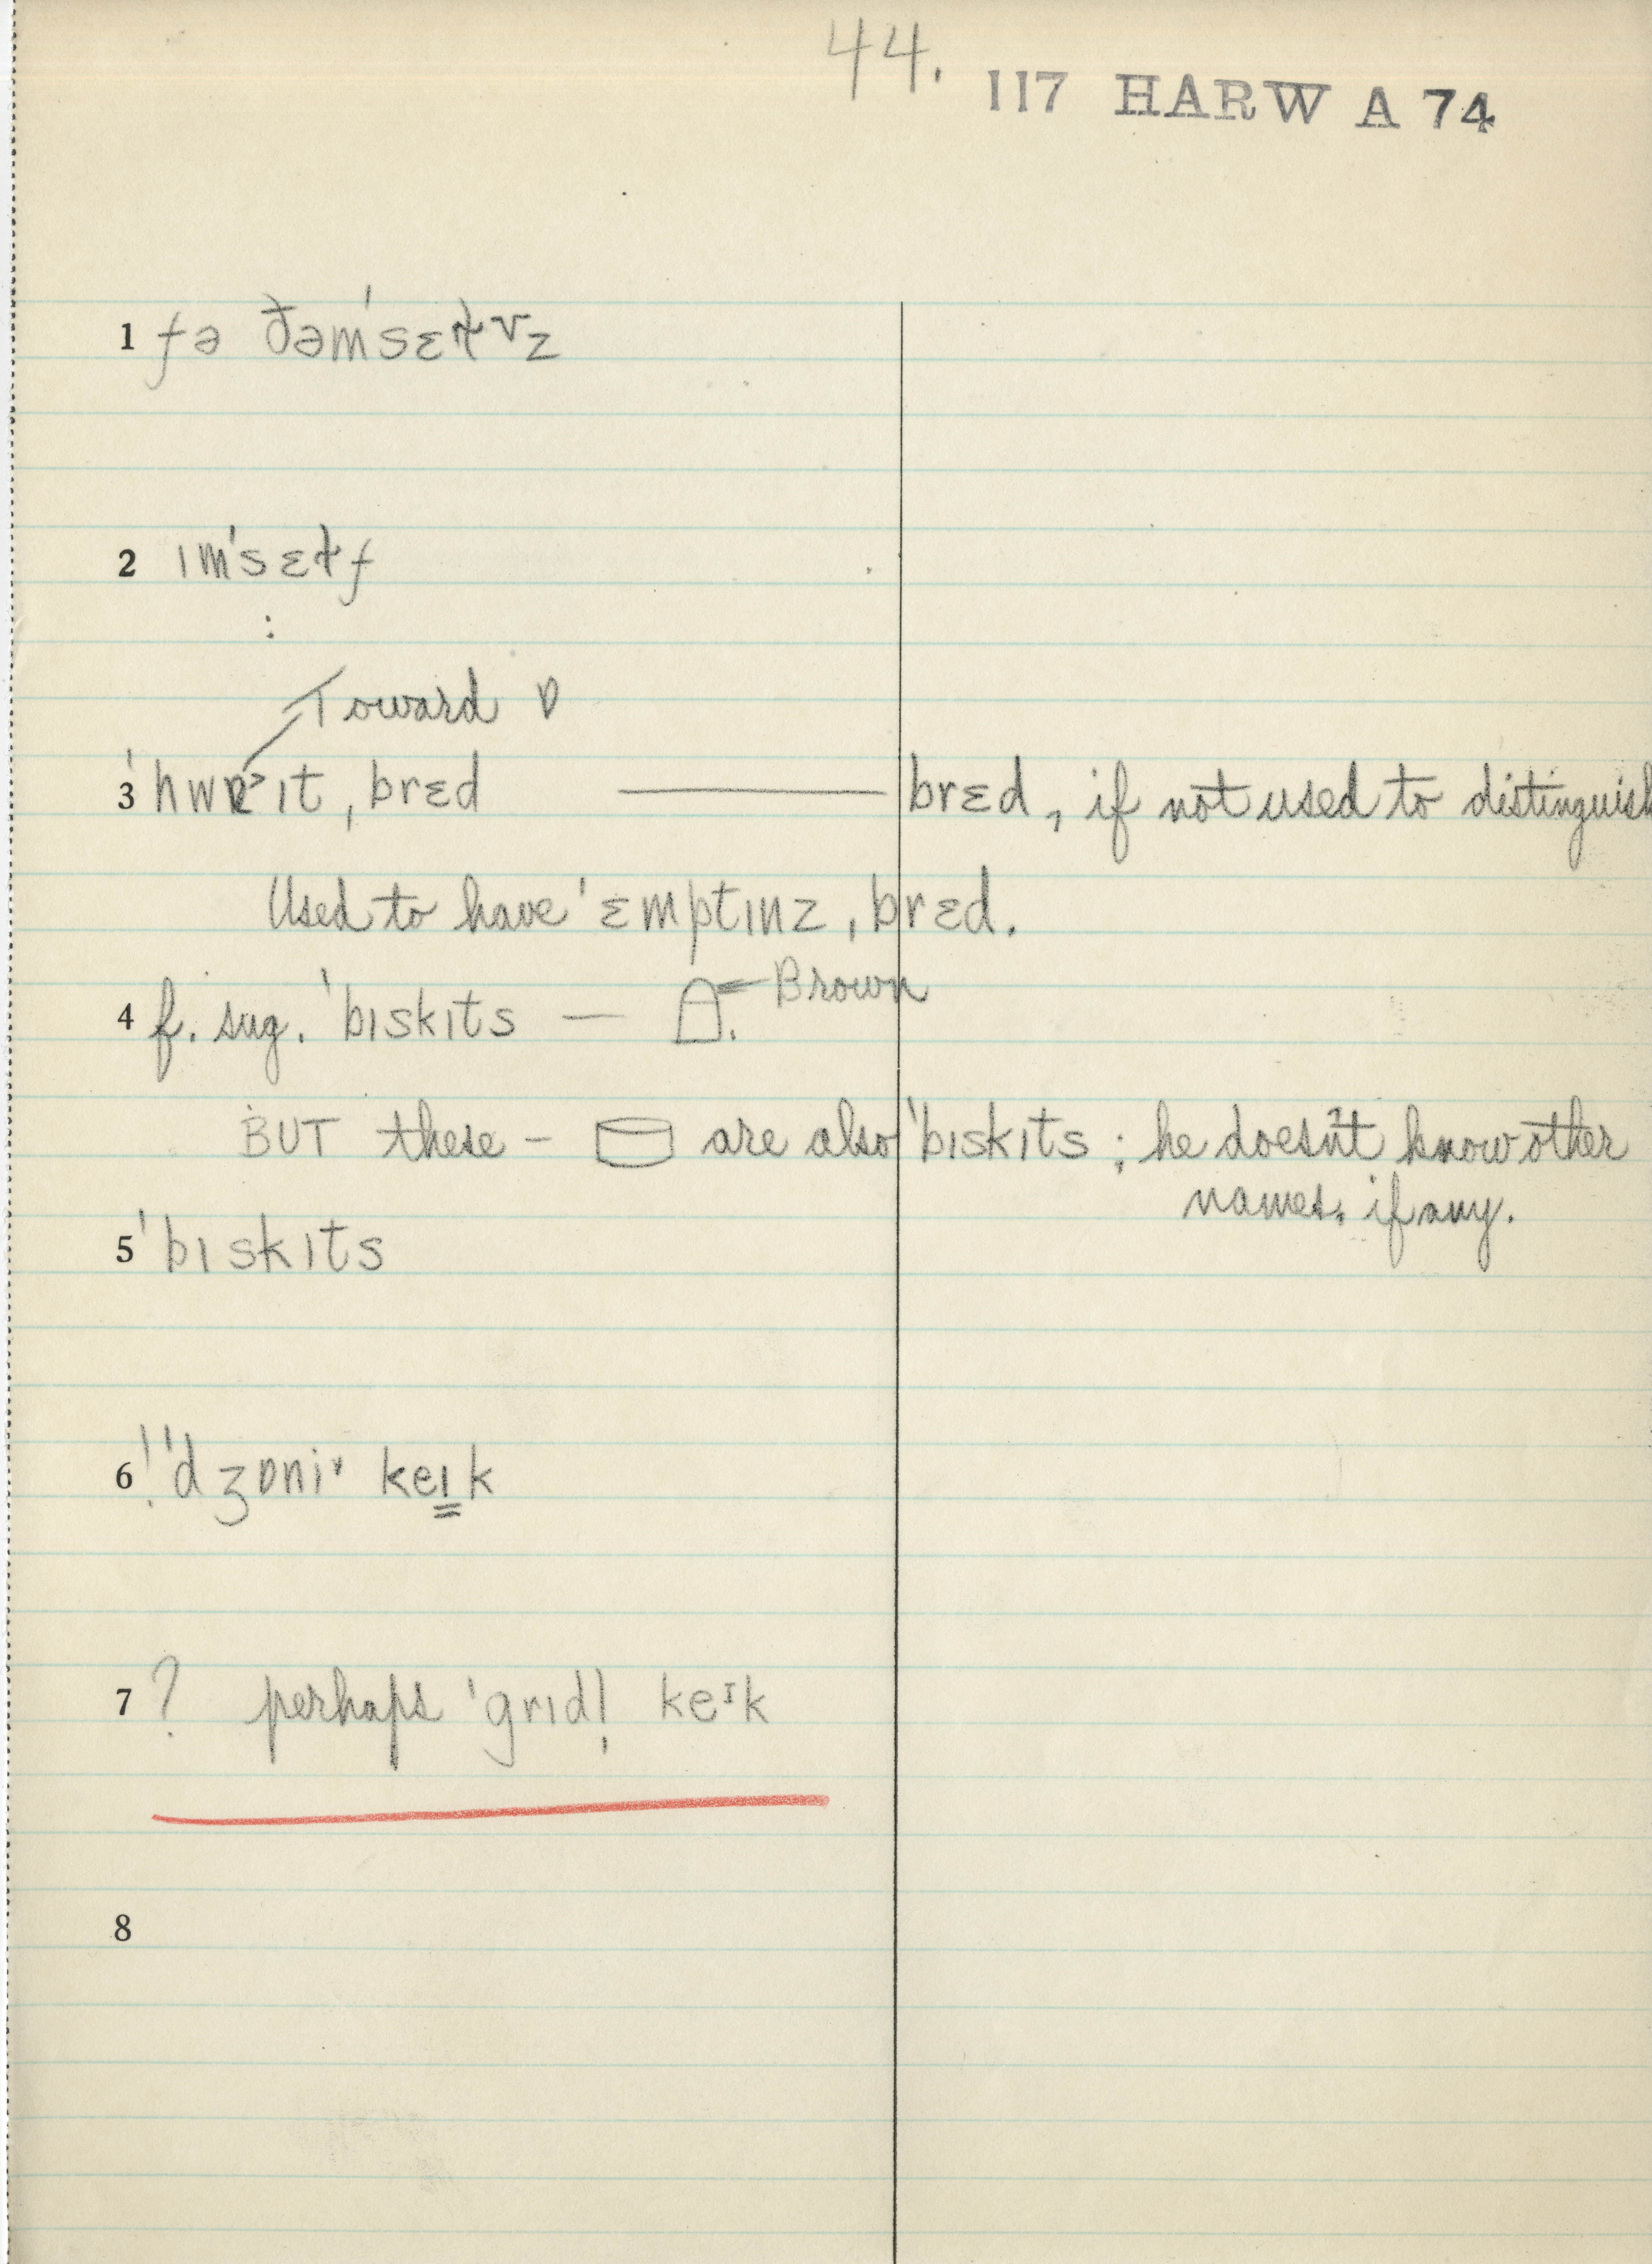 44. 117 HARW A 74
1 fə ðəm'sɛɫvz
2 ɪm'sɛɫf
Toward ɒ
3 'hwɒ˃ɪt ˌbrɛd — brɛd, if not used to distinguish
Used to have 'ɛmptɪnz ˌbrɛd.
4 f. sug. 'bɪskɪts — Brown
BUT these – are also 'bɪskɪts ; he doesn't know other
names, if any.
5 'bɪskɪts
6 ! 'dʒɒniˇ keɪk
7 ? perhaps 'grɪdl̩ keɪk
8